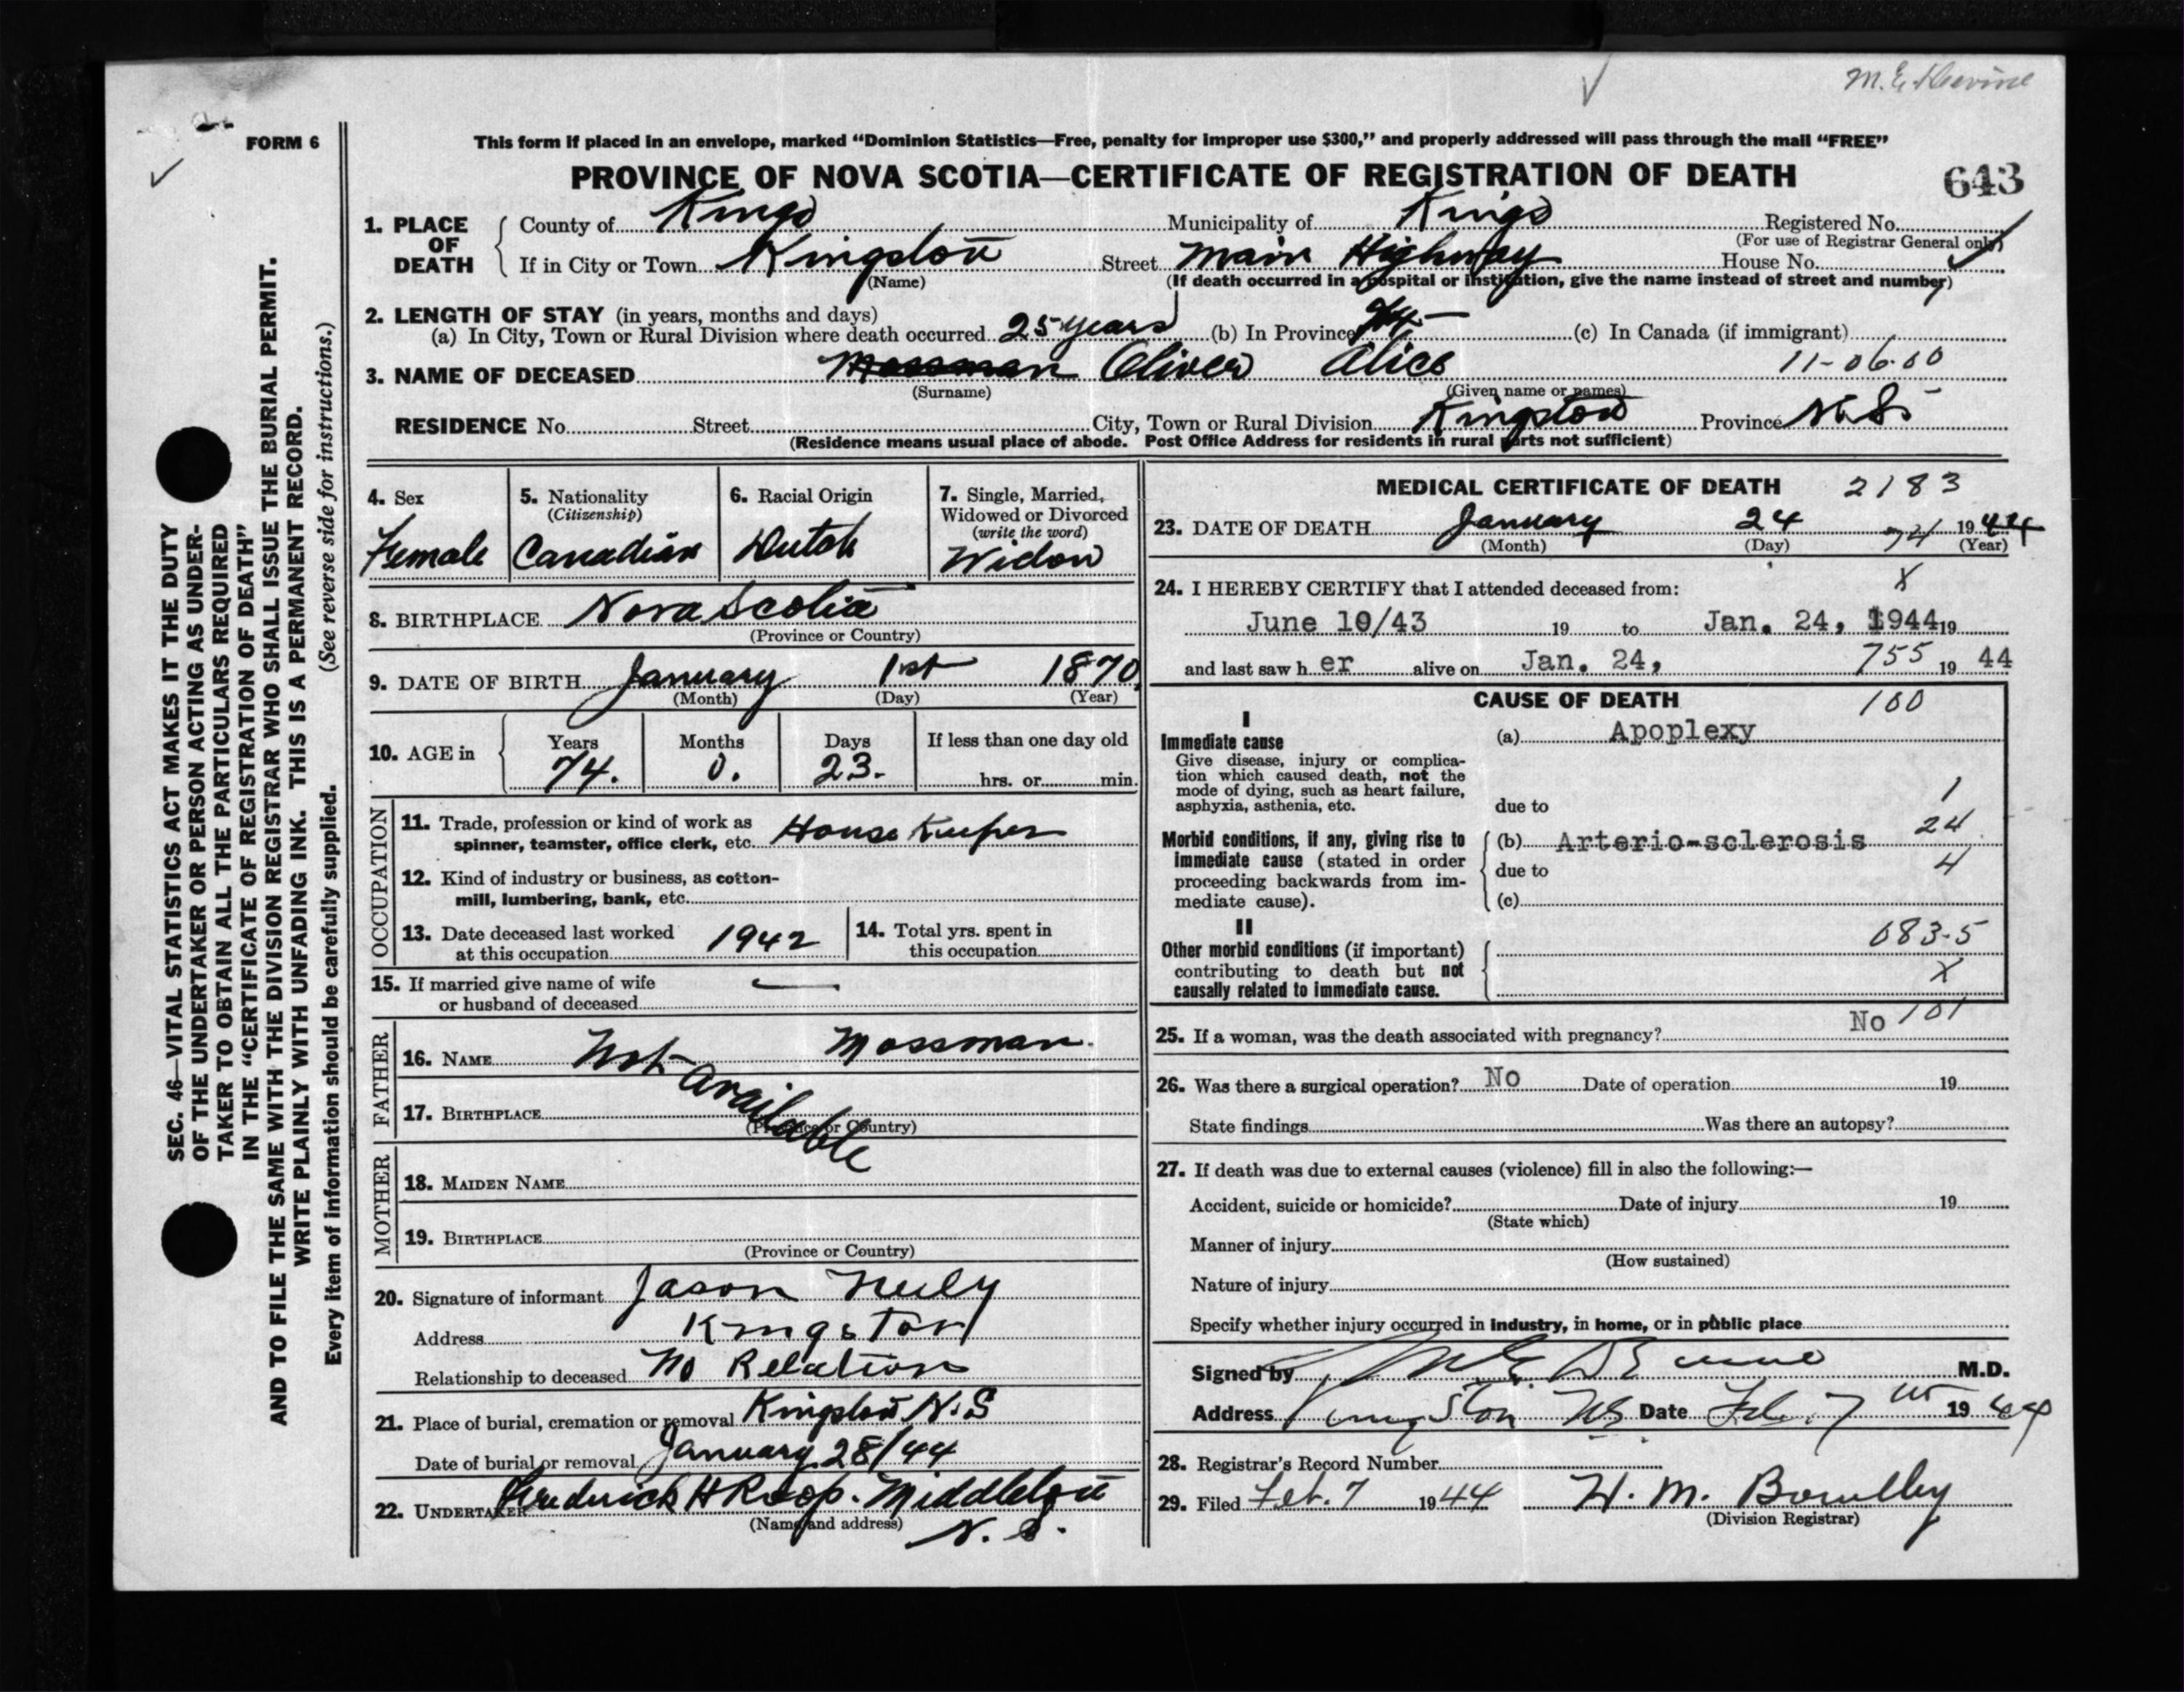 FORM 6
This form if placed in an envelope, marked “Dominion Statistics—Free, penalty for improper use $300,” and properly addressed will pass through the mail “FREE”
PROVINCE OF NOVA SCOTIA—CERTIFICATE OF REGISTRATION OF DEATH
643
1. PLACE OF DEATH
County of Kings Municipality of Kings Registered No.
(For use of Registrar General only)
If in City or Town Kingston Street Main Highway House No.
(Name) (If death occurred in a hospital or institution, give the name instead of street and number)
2. LENGTH OF STAY (in years, months and days)
(a) In City, Town or Rural Division where death occurred 25 years (b) In Province 74 (c) In Canada (if immigrant)
3. NAME OF DECEASED Mossman Oliver Alice 11-06-00
(Surname) (Given name or names)
RESIDENCE No. Street City, Town or Rural Division Kingston Province N.S.
(Residence means usual place of abode. Post Office Address for residents in rural parts not sufficient)
4. Sex
Female
5. Nationality
(Citizenship)
Canadian
6. Racial Origin
Dutch
7. Single, Married,
Widowed or Divorced
(write the word)
Widow
8. BIRTHPLACE Nova Scotia
(Province or Country)
9. DATE OF BIRTH January 1st 1870
(Month) (Day) (Year)
10. AGE in Years Months Days If less than one day old
74. 0. 23. hrs. or min.
OCCUPATION
11. Trade, profession or kind of work as
spinner, teamster, office clerk, etc. House Keeper
12. Kind of industry or business, as cotton-
mill, lumbering, bank, etc.
13. Date deceased last worked
at this occupation 1942
14. Total yrs. spent in
this occupation
15. If married give name of wife
or husband of deceased —
FATHER
16. NAME Not available Mossman.
17. BIRTHPLACE
(Province or Country)
MOTHER
18. MAIDEN NAME
19. BIRTHPLACE
(Province or Country)
20. Signature of informant Jason Neily
Address Kingston
Relationship to deceased No Relation
21. Place of burial, cremation or removal Kingston N.S
Date of burial or removal January 28/44
22. UNDERTAKER Frederick H Roop. Middleton
(Name and address) N. S.
MEDICAL CERTIFICATE OF DEATH 2183
23. DATE OF DEATH January 24 74 1944
(Month) (Day) (Year)
24. I HEREBY CERTIFY that I attended deceased from: X
June 10/43 19 to Jan. 24, 1944 19
and last saw her alive on Jan. 24, 755 19 44
CAUSE OF DEATH 100
I
Immediate cause
Give disease, injury or complica-
tion which caused death, not the
mode of dying, such as heart failure,
asphyxia, asthenia, etc.
(a) Apoplexy
1
due to
Morbid conditions, if any, giving rise to
immediate cause (stated in order
proceeding backwards from im-
mediate cause).
24
(b) Arterio-sclerosis
due to 4
(c)
II
Other morbid conditions (if important)
contributing to death but not
causally related to immediate cause.
083-5
X
25. If a woman, was the death associated with pregnancy? No 101
26. Was there a surgical operation? No Date of operation 19
State findings Was there an autopsy?
27. If death was due to external causes (violence) fill in also the following:—
Accident, suicide or homicide? Date of injury 19
(State which)
Manner of injury
(How sustained)
Nature of injury
Specify whether injury occurred in industry, in home, or in public place
Signed by M.D.
Address Kingston NS Date Feb. 7th 1944
28. Registrar's Record Number
29. Filed Feb. 7 1944 H. M.
(Division Registrar)
SEC. 46—VITAL STATISTICS ACT MAKES IT THE DUTY
OF THE UNDERTAKER OR PERSON ACTING AS UNDER-
TAKER TO OBTAIN ALL THE PARTICULARS REQUIRED
IN THE “CERTIFICATE OF REGISTRATION OF DEATH”
AND TO FILE THE SAME WITH THE DIVISION REGISTRAR WHO SHALL ISSUE THE BURIAL PERMIT.
WRITE PLAINLY WITH UNFADING INK. THIS IS A PERMANENT RECORD.
Every item of information should be carefully supplied. (See reverse side for instructions.)